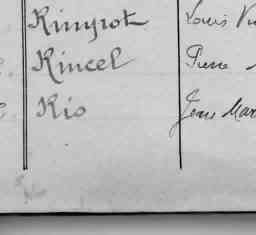 Kinyrot Louis
Kincel Pierre
Kio Jean Mar